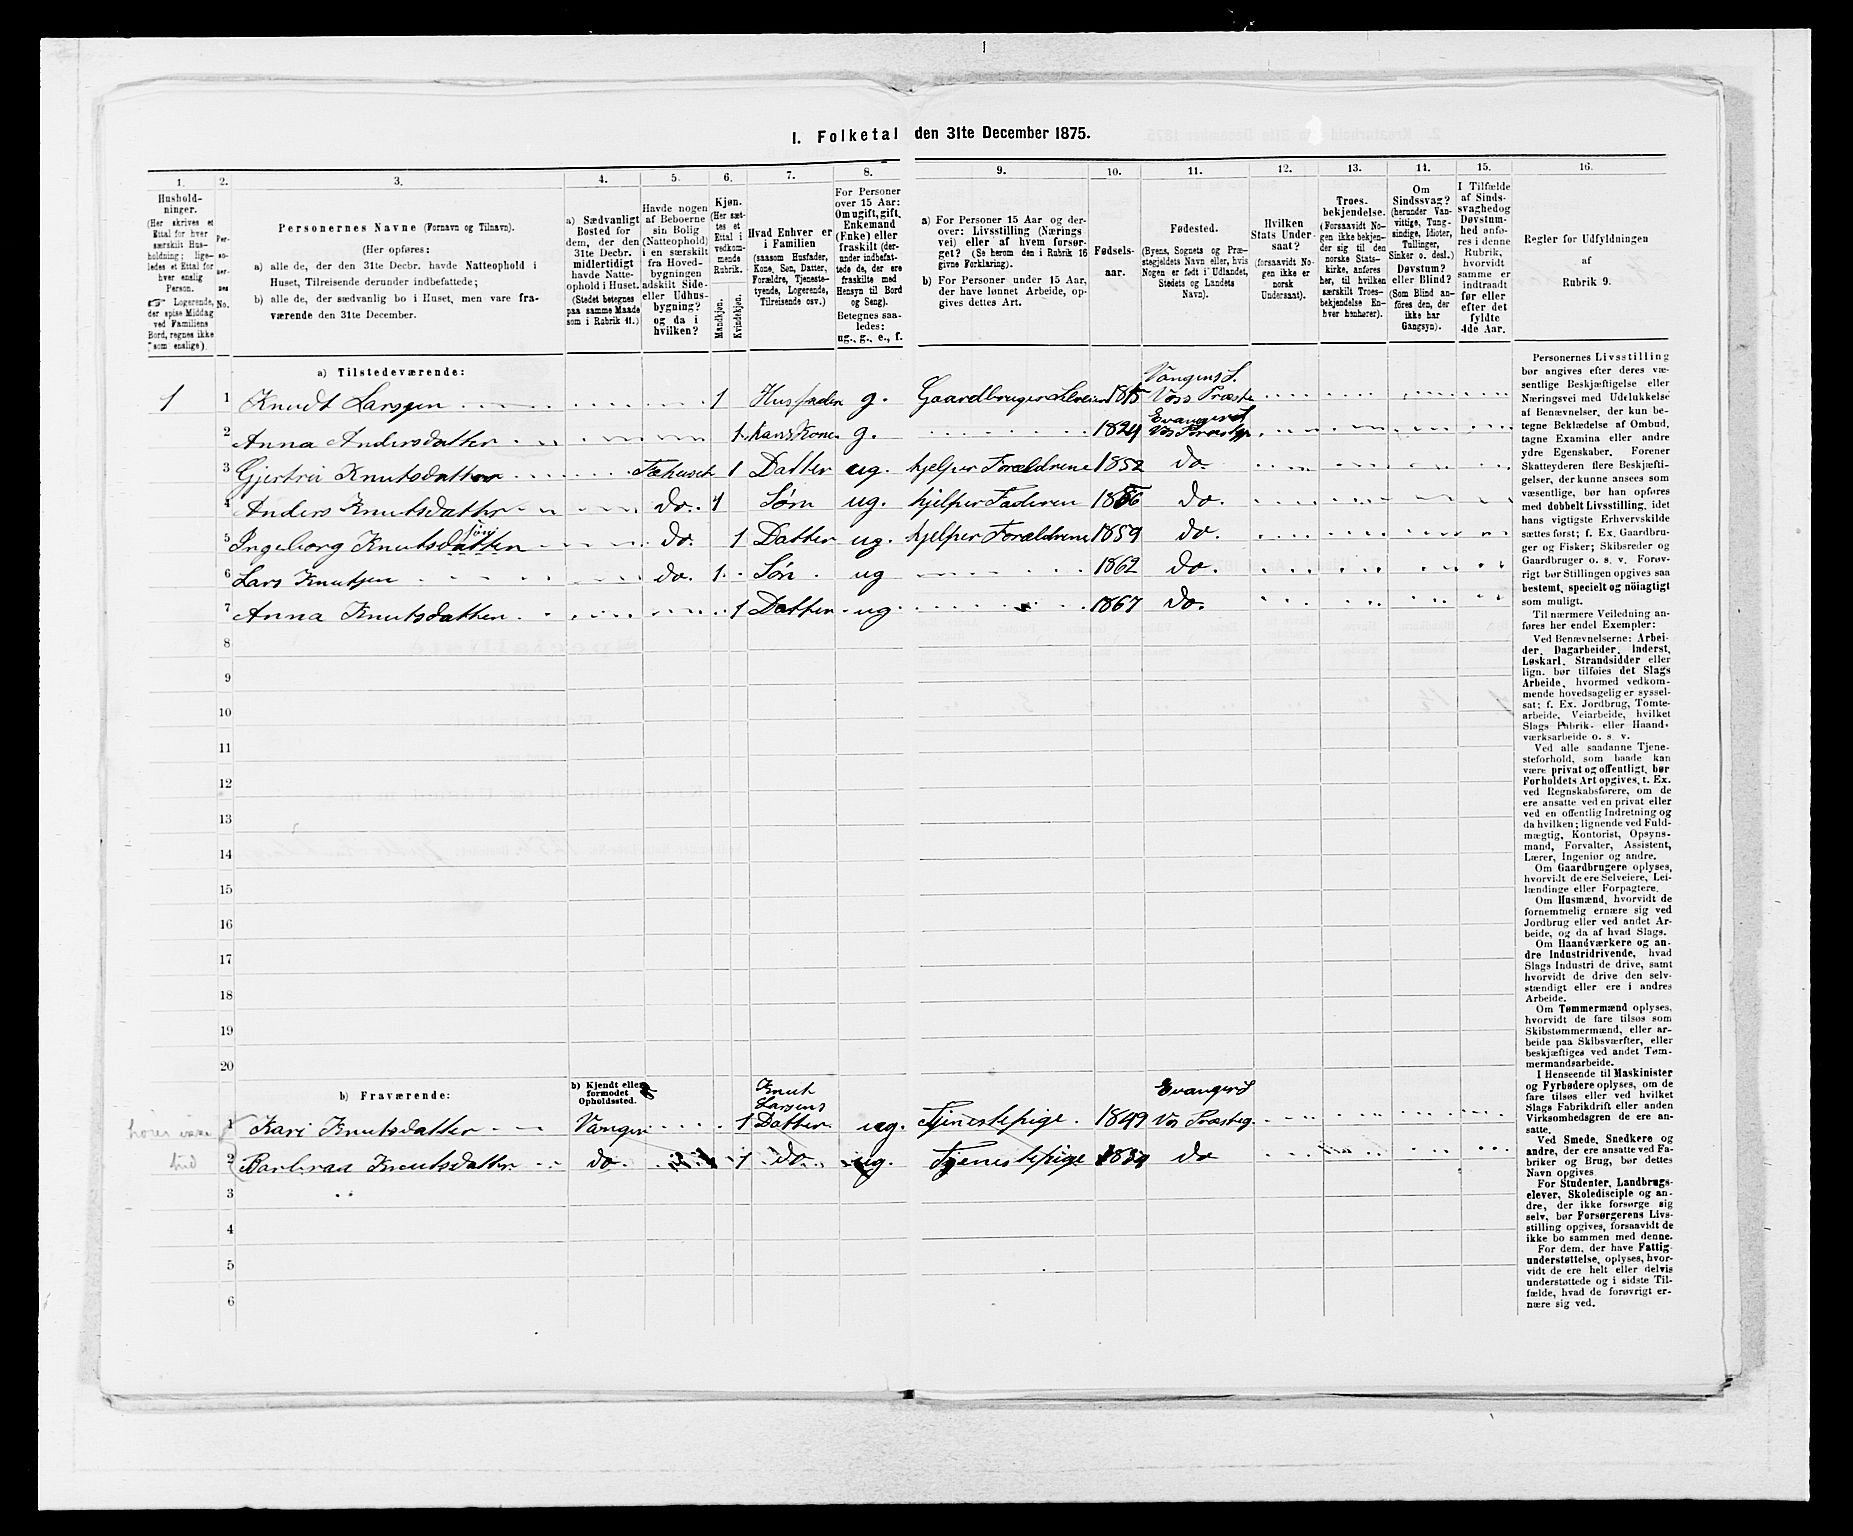 1
I. Folketal den 31te December 1875.
1. 2. 3. 4. 5. 6. 7. 8. 9. 10. 11. 12. 13. 14. 15. 16.
Husholdninger.
(Her skrives et Ettal for hver særskilt Husholdning; ligeledes et Ettal for hver enslig Person.
☞ Logerende, der spise Middag ved Familiens Bord, regnes ikke som enslige).
Personernes No.
Personernes Navne (Fornavn og Tilnavn).
(Her opføres:
a) alle de, der den 31te Decbr. havde Natteophold i Huset, Tilreisende derunder indbefattede;
b) alle de, der sædvanlig bo i Huset, men vare fraværende den 31te December.
a) Sædvanligt Bosted for dem, der den 31te Decbr. midlertidigt havde Natteophold i Huset. (Stedet betegnes paa samme Maade som i Rubrik 11.)
Havde nogen af Beboerne sin Bolig (Natteophold) i en særskilt fra Hovedbygningen adskilt Side- eller Udhusbygning? og da i hvilken?
Kjøn. (Her sættes et Ettal i vedkommende Rubrik. Mandkjøn. Kvindekjøn.
Hvad Enhver er i Familien (saasom Husfader, Kone, Søn, Datter, Forældre, Tjenestetyende, Logerende, Tilreisende osv.)
For Personer over 15 Aar: Om ugift, gift, Enkemand (Enke) eller fraskilt (derunder indbefattede de, der ere fraskilte med Hensyn til Bord og Seng). Betegnes saaledes: ug., g., e., f.
a) For Personer 15 Aar og derover: Livsstilling (Næringsvei) eller af hvem forsørget? (Se herom den i Rubrik 16 givne Forklaring).
b) For Personer under 15 Aar, der have lønnet Arbeide, opgives dettes Art.
Fødselsaar.
Fødested. (Byens, Sognets og Præstegjeldets Navn eller, hvis Nogen er født i Udlandet, Stedets og Landets Navn).
Hvilken Stats Undersaat? (forsaavidt Nogen ikke er norsk Undersaat).
Troesbekjendelse. (Forsaavidt Nogen ikke bekjender sig til den norske Statskirke, anføres her, til hvilken særskilt Troesbekjendelse Enhver henhører).
Om Sindssvag? (herunder Vanvittige, Tungsindige, Idioter, Tullinger, Sinker o. desl.) Døvstum? eller Blind? (Som Blind anføres den, der ikke har Gangsyn).
I Tilfælde af Sindssvaghed og Døvstumhed anføres i denne Rubrik, hvorvidt samme er indtraadt før eller efter det fyldte 4de Aar.
Regler for Udfyldningen
af
Rubrik 9.
a) Tilstedeværende:
1 1 Knudt Larssen 1 Husfader g. Gaardbruger Selveier 1815 Vangens S. Vos Præste
2 Anna Andersdatter 1 hans Kone g. 1824 Evanger S. Vos Præstg.
3 Gjertrui Knutsdatter Fæhuset 1 Datter ug. hjelper Forældrene 1852 do
4 Anders Knutsdatter do. 1 Søn ug. hjelper Faderen 1856 do.
5 Ingeborg Knutsdatter do. 1 Datter ug. hjelper Forældrene 1859 do.
6 Lars Knutsen do. 1 Søn ug 1862 do.
7 Anna Knutsdatter 1 Datter ug. 1867 do.
8
9
10
11
12
13
14
15
16
17
18
19
20
b) Fraværende:
b) Kjendt eller formodet Opholdssted.
1 Kari Knutsdatter Vanger 1 Knut Larsens Datter ug. Tjenestepige. 1849 Evanger S Vos Præsteg.
2 Barbraa Knutsdatter do. 1 do ug. Tjenestepige do
3
4
5
6
Personernes Livsstilling
bør angives efter deres væ-
sentlige Beskjæftigelse eller
Næringsvei med Udelukkelse
af Benævnelser, der kun be-
tegne Beklædelse af Ombud,
tagne Examina eller andre
ydre Egenskaber. Forener
Skatteyderen flere Beskjæfti-
gelser, der kunne ansees som
væsentlige, bør han opføres
med dobbelt Livsstilling, idet
hans vigtigste Erhvervskilde
sættes først; f. Ex. Gaardbru-
ger og Fisker; Skibsreder og
Gaardbruger o. s. v. Forøv-
rigt bør Stillingen opgives saa
bestemt, specielt og nøiagtigt
som muligt.
Til nærmere Veiledning an-
føres her endel Exempler:
Ved Benævnelserne: Arbei-
der, Dagarbeider, Inderst,
Løskarl, Strandsidder eller
lign. bør tilføies det Slags
Arbeide, hvormed vedkom-
mende hovedsagelig er syssel-
sat; f. Ex. Jordbrug, Tomte-
arbeide, Veiarbeide, hvilket
Slags Fabrik- eller Haand-
værksarbeide o. s. v.
Ved alle saadanne Tjene-
steforhold, som baade kan
være privat og offentligt, bør
Forholdets Art opgives, t. Ex.
ved Regnskabsførere, om de
ere ansatte ved en privat eller
ved en offentlig Indretning og
da hvilken; lignende ved Fuld-
mægtig, Kontorist, Opsyns-
mand, Forvalter, Assistent,
Lærer, Ingeniør og andre.
Om Gaardbrugere oplyses,
hvorvidt de ere Selveiere, Lei-
lændinge eller Forpagtere.
Om Husmænd, hvorvidt de
fornemmelig ernære sig ved
Jordbrug eller ved andet Ar-
beide, og da af hvad Slags.
Om Haandværkere og an-
dre Industridrivende, hvad
Slags Industri de drive, samt
hvorvidt de drive den selv-
stændigt eller ere i andres
Arbeide.
Om Tømmermænd oplyses,
hvorvidt de fare tilsøs som
Skibstømmermænd, eller ar-
beide paa Skibsværfter, eller
beskjæftiges ved andet Tøm-
mermandsarbeide.
I Henseende til Maskinister
og Fyrbødere oplyses, om de
fare tilsøs eller ved hvilket
Slags Fabrikdrift eller anden
Virksomhedsgren de ere an-
satte.
Ved Smede, Snedkere og
andre, der ere ansatte ved Fa-
briker og Brug, bør dettes
Navn opgives.
For Studenter, Landbrugs-
elever, Skoledisciple og an-
dre, der ikke forsørge sig
selv, bør Forsørgerens Livs-
stilling opgives, forsaavidt de
ikke bo sammen med denne.
For dem, der have Fattig-
understøttelse, oplyses, hvor-
vidt de ere helt eller delvis
understøttede og i sidste Til-
fælde, hvad de forøvrigt er-
nære sig ved.